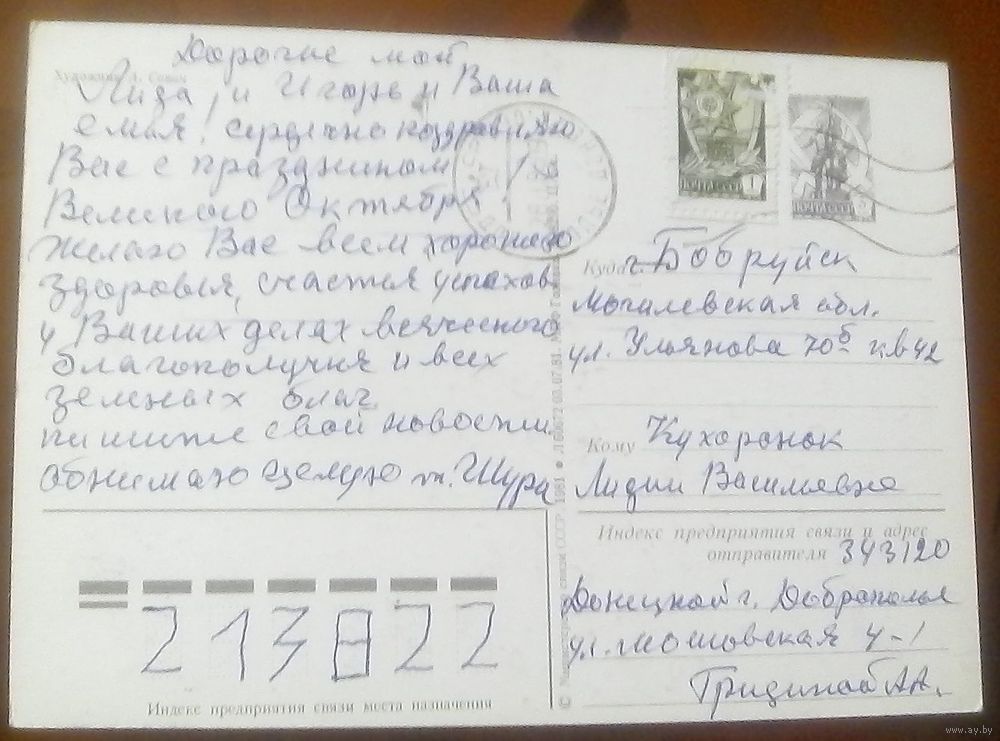 Дорогие мои
Художник А. Савин
Лида, и Игорь и Ваша
семья! сердечно поздравляю
Вас с праздником
Великого Октября
желаю Вас всем хорошего
здоровья, счастья успехов
у Ваших делах всяческого
благополучия и всех
земных благ.
пишите свои новости.
обнимаю целую т. Шура
ПОЧТА СССР 1
ПОЧТА СССР
Куда г. Бобруйск
Могилевская обл.
ул. Ульянова 70б кв 42
Кому Кухоронок
Лидии Васильевне
Индекс предприятия связи и адрес
отправителя 343120
Донецкой г. Доброполье
ул. Московская 4-1
Гридиной А А.
213822
Индекс предприятия связи места назначения
www.ay.by